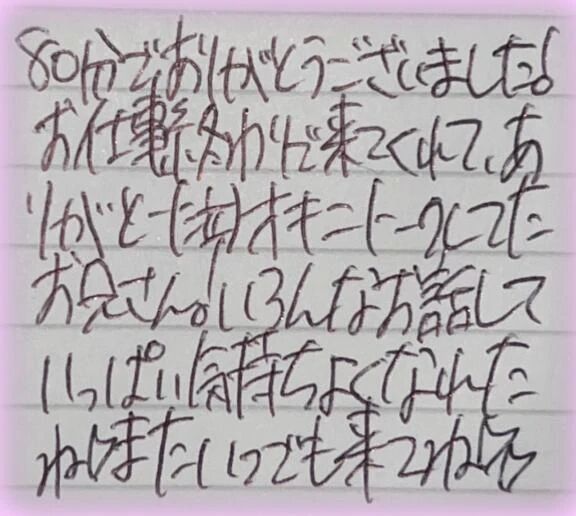 80分でありがとうございました!
お仕事終わりで来てくれて、あ
りがとーたオキニトークしてた
お兄さん!いろんなお話して
いっぱい気持ちよくなれた
ねまたいつでも来てねっ